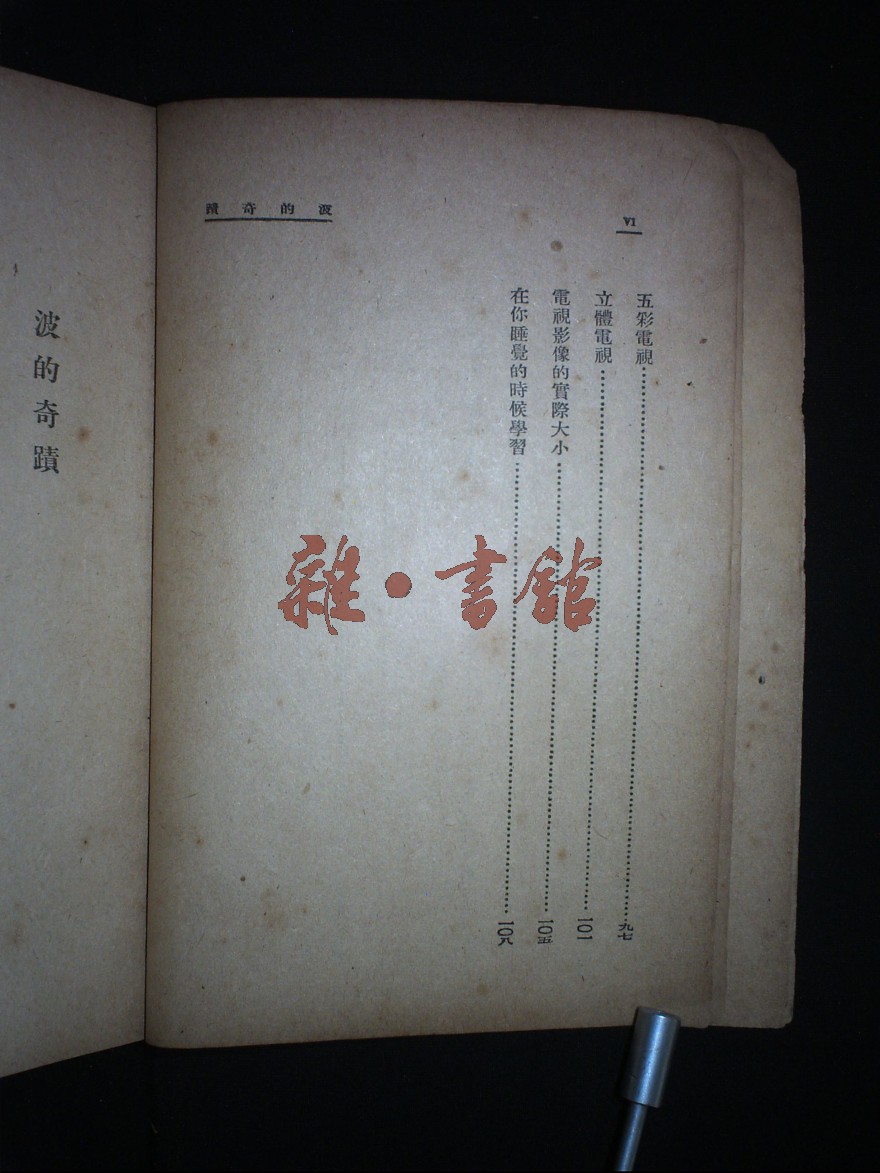 VI
波的奇蹟
五彩電視……九七
立體電視……一〇一
電視影像的實際大小……一〇五
在你睡覺的時候學習……一〇八
波的奇蹟
雜·書館